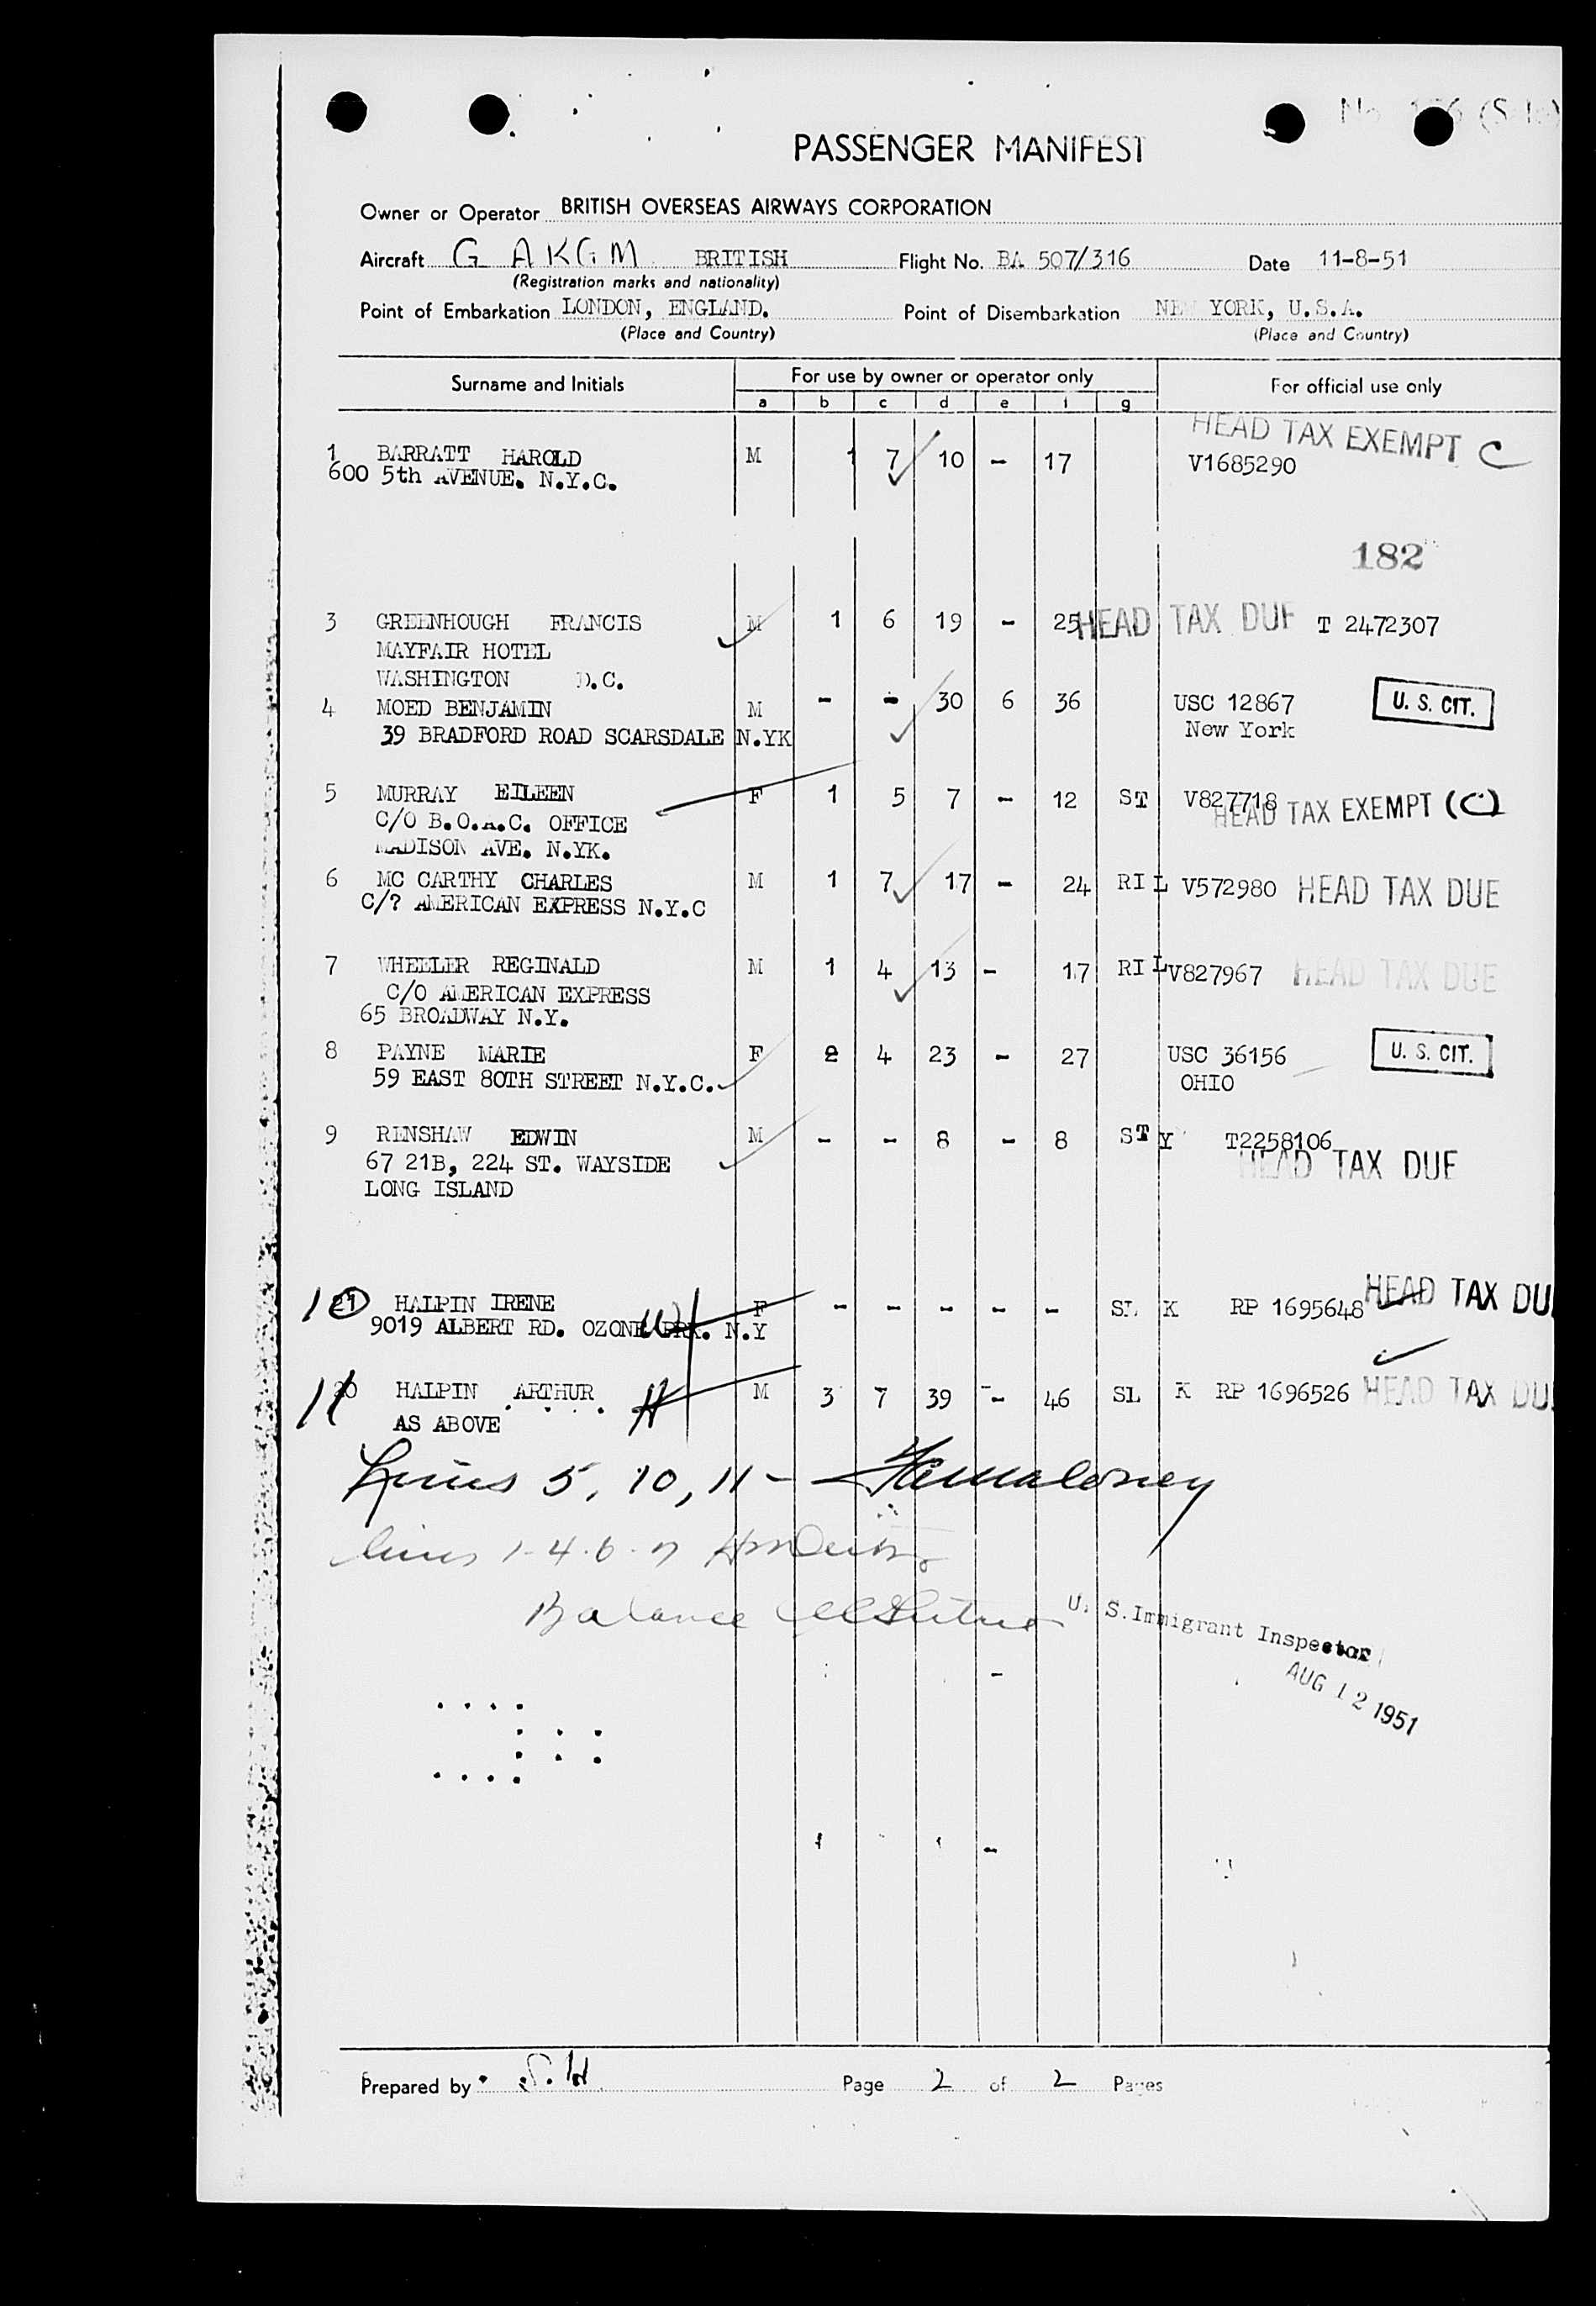 PASSENGER MANIFEST
Owner or Operator BRITISH OVERSEAS AIRWAYS CORPORATION
Aircraft G AKGM BRITISH Flight No. BA 507/316 Date 11-8-51
(Registration marks and nationality)
Point of Embarkation LONDON, ENGLAND. Point of Disembarkation NEW YORK, U.S.A.
(Place and Country) (Place and Country)
Surname and Initials For use by owner or operator only For official use only
a b c d e f g
HEAD TAX EXEMPT C
1 BARRATT HAROLD M 1 7 10 - 17 V1685290
600 5th AVENUE. N.Y.C.
182
3 GREENHOUGH FRANCIS M 1 6 19 - 25 HEAD TAX DUE T 2472307
MAYFAIR HOTEL
WASHINGTON D.C.
4 MOED BENJAMIN M - - 30 6 36 USC 12867 U. S. CIT.
39 BRADFORD ROAD SCARSDALE N.YK New York
5 MURRAY EILEEN F 1 5 7 - 12 ST V827718 HEAD TAX EXEMPT (C)
C/O B.O.A.C. OFFICE
MADISON AVE. N.YK.
6 MC CARTHY CHARLES M 1 7 17 - 24 RI L V572980 HEAD TAX DUE
C/? AMERICAN EXPRESS N.Y.C
7 WHEELER REGINALD M 1 4 13 - 17 RI L V827967 HEAD TAX DUE
C/O AMERICAN EXPRESS
65 BROADWAY N.Y.
8 PAYNE MARIE F 2 4 23 - 27 USC 36156 U. S. CIT.
59 EAST 80TH STREET N.Y.C. OHIO
9 RENSHAW EDWIN M - - 8 - 8 ST Y T2258106
67 21B, 224 ST. WAYSIDE HEAD TAX DUE
LONG ISLAND
10 HALPIN IRENE F - - - - - SL K RP 1695648 HEAD TAX DU
9019 ALBERT RD. OZONE PRK. N.Y
11 20 HALPIN ARTHUR M 3 7 39 - 46 SL K RP 1696526 HEAD TAX DU
AS ABOVE
Lines 5, 10, 11 -
lines 1-4-6-7
Balance
U. S. Immigrant Inspector
AUG 12 1951
Prepared by S.H. Page 2 of 2 Pages